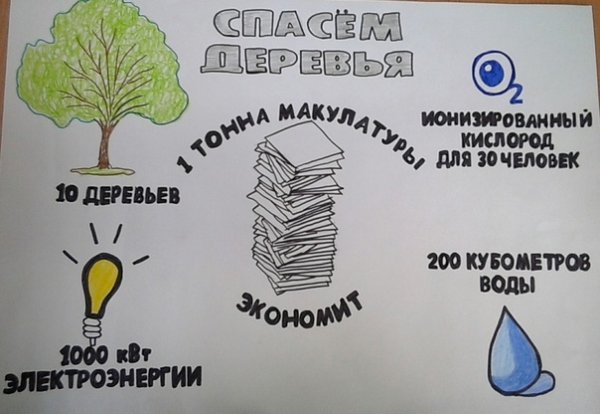 СПАСЁМ
ДЕРЕВЬЯ
1 ТОННА МАКУЛАТУРЫ
ЭКОНОМИТ
10 ДЕРЕВЬЕВ
O2
ИОНИЗИРОВАННЫЙ
КИСЛОРОД
ДЛЯ 30 ЧЕЛОВЕК
1000 кВт
ЭЛЕКТРОЭНЕРГИИ
200 КУБОМЕТРОВ
ВОДЫ